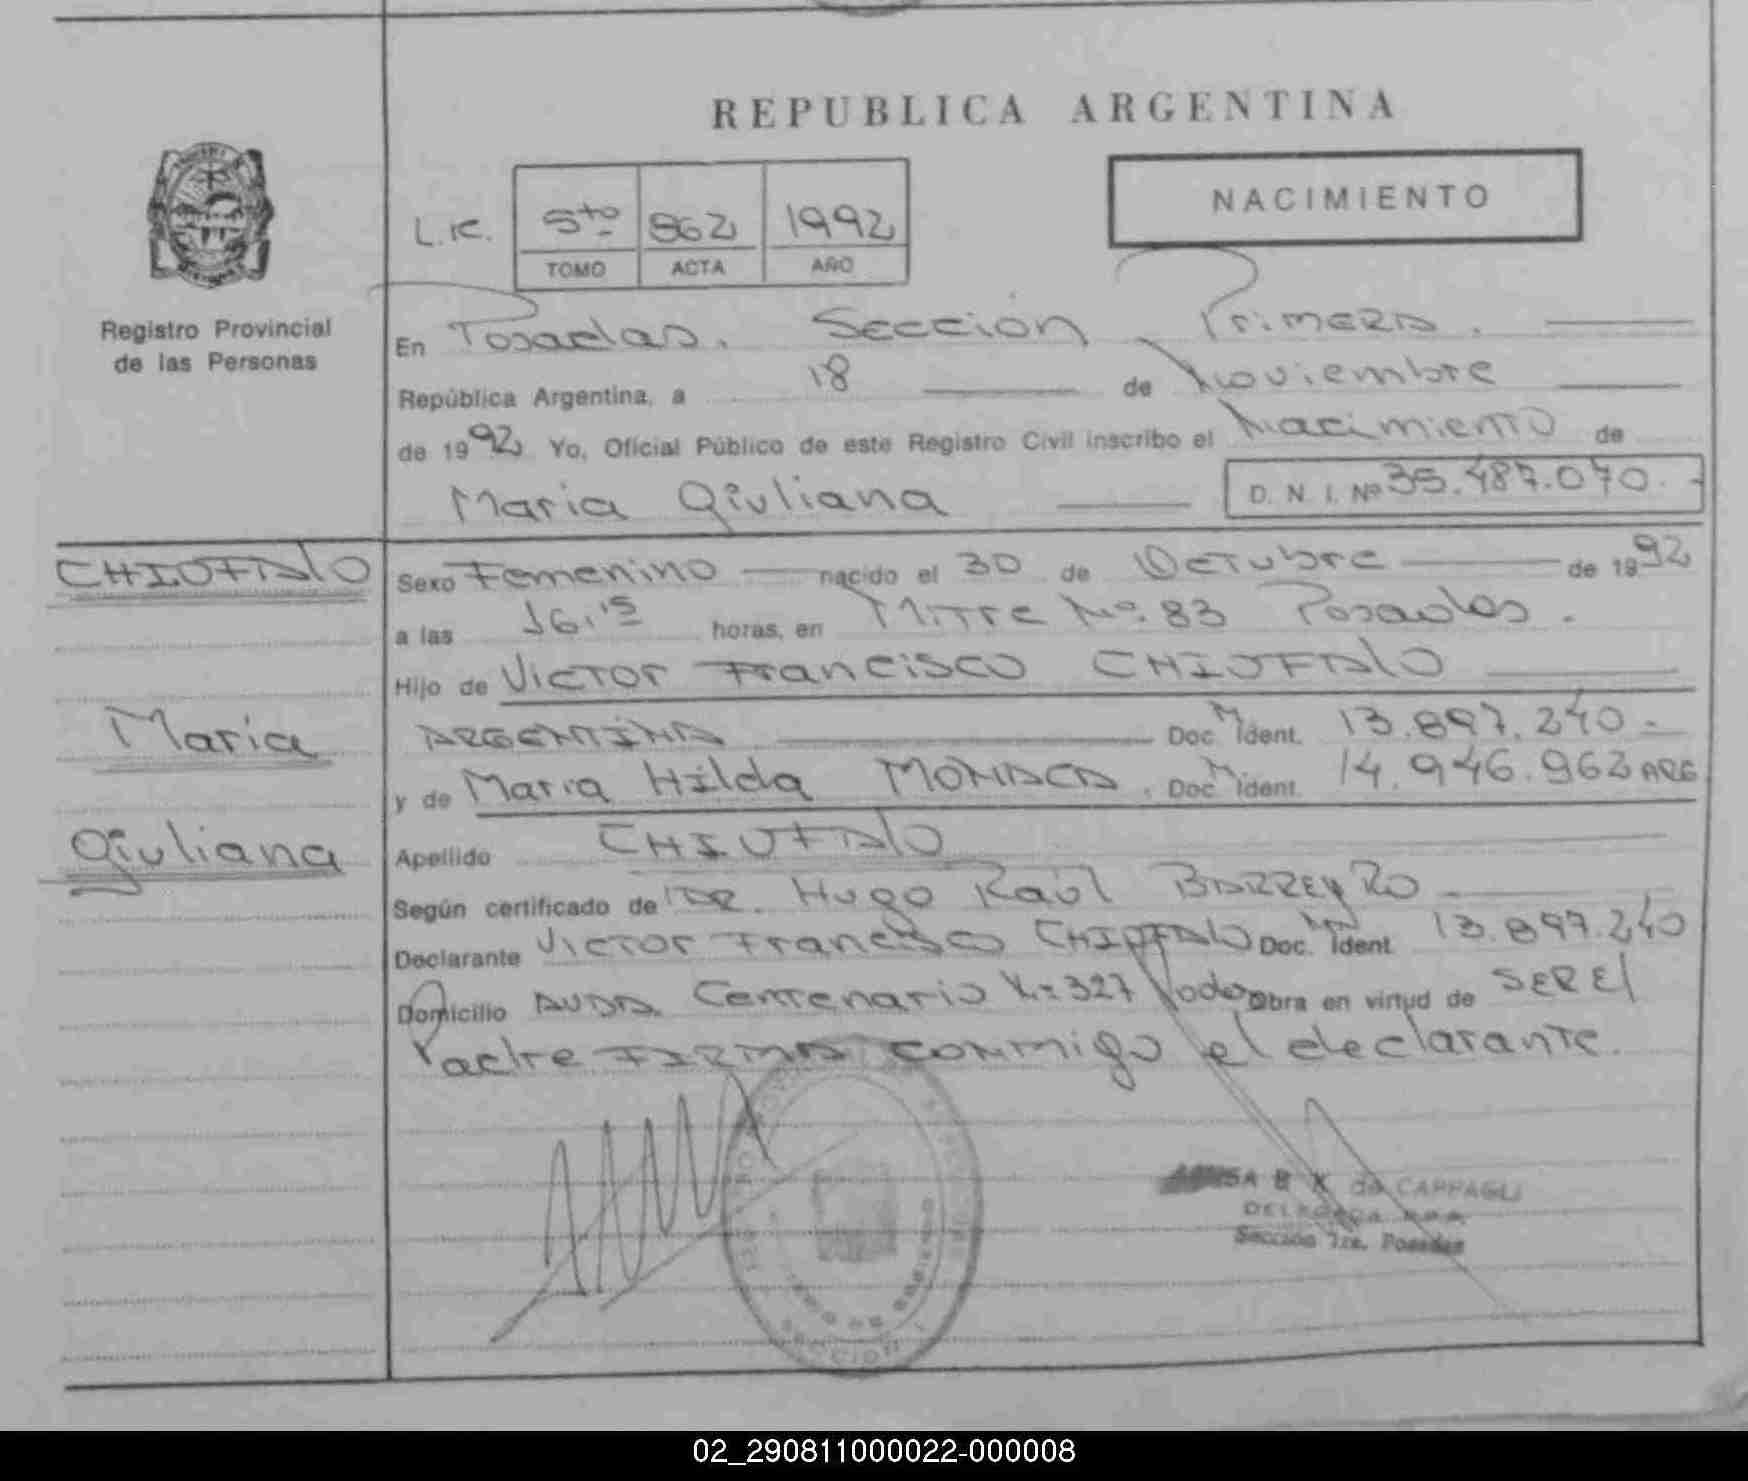 REPUBLICA ARGENTINA
NACIMIENTO
L.C. 5to 862 1992
TOMO ACTA AÑO
Registro Provincial
de las Personas
En Posadas. Sección Primera.
República Argentina, a 18 de Noviembre
de 1992 Yo, Oficial Público de este Registro Civil inscribo el Nacimiento de
Maria Giuliana D. N. I. Nº 35.487.070.-
CHIOFALO
Sexo Femenino nacido el 30 de Octubre de 1992
a las 16,15 horas, en Mitre Nº 83 Posadas.
Hijo de Victor Francisco CHIOFALO
Maria
ARGENTINA Doc. M Ident. 13.897.240.-
y de Maria Hilda MONACA. Doc. M Ident. 14.946.962 ARG
Giuliana
Apellido CHIOFALO
Según certificado de DR. Hugo Raúl BARREYRO
Declarante Victor Francisco CHIOFALO Doc. M Ident 13.897.240
Domicilio AVDA. Centenario Nº 327 Pdas Obra en virtud de SER El
Padre FIRMA conmigo el declarante.
de CAPPAGLI
Sección 1ra. Posadas
02_290811000022-000008